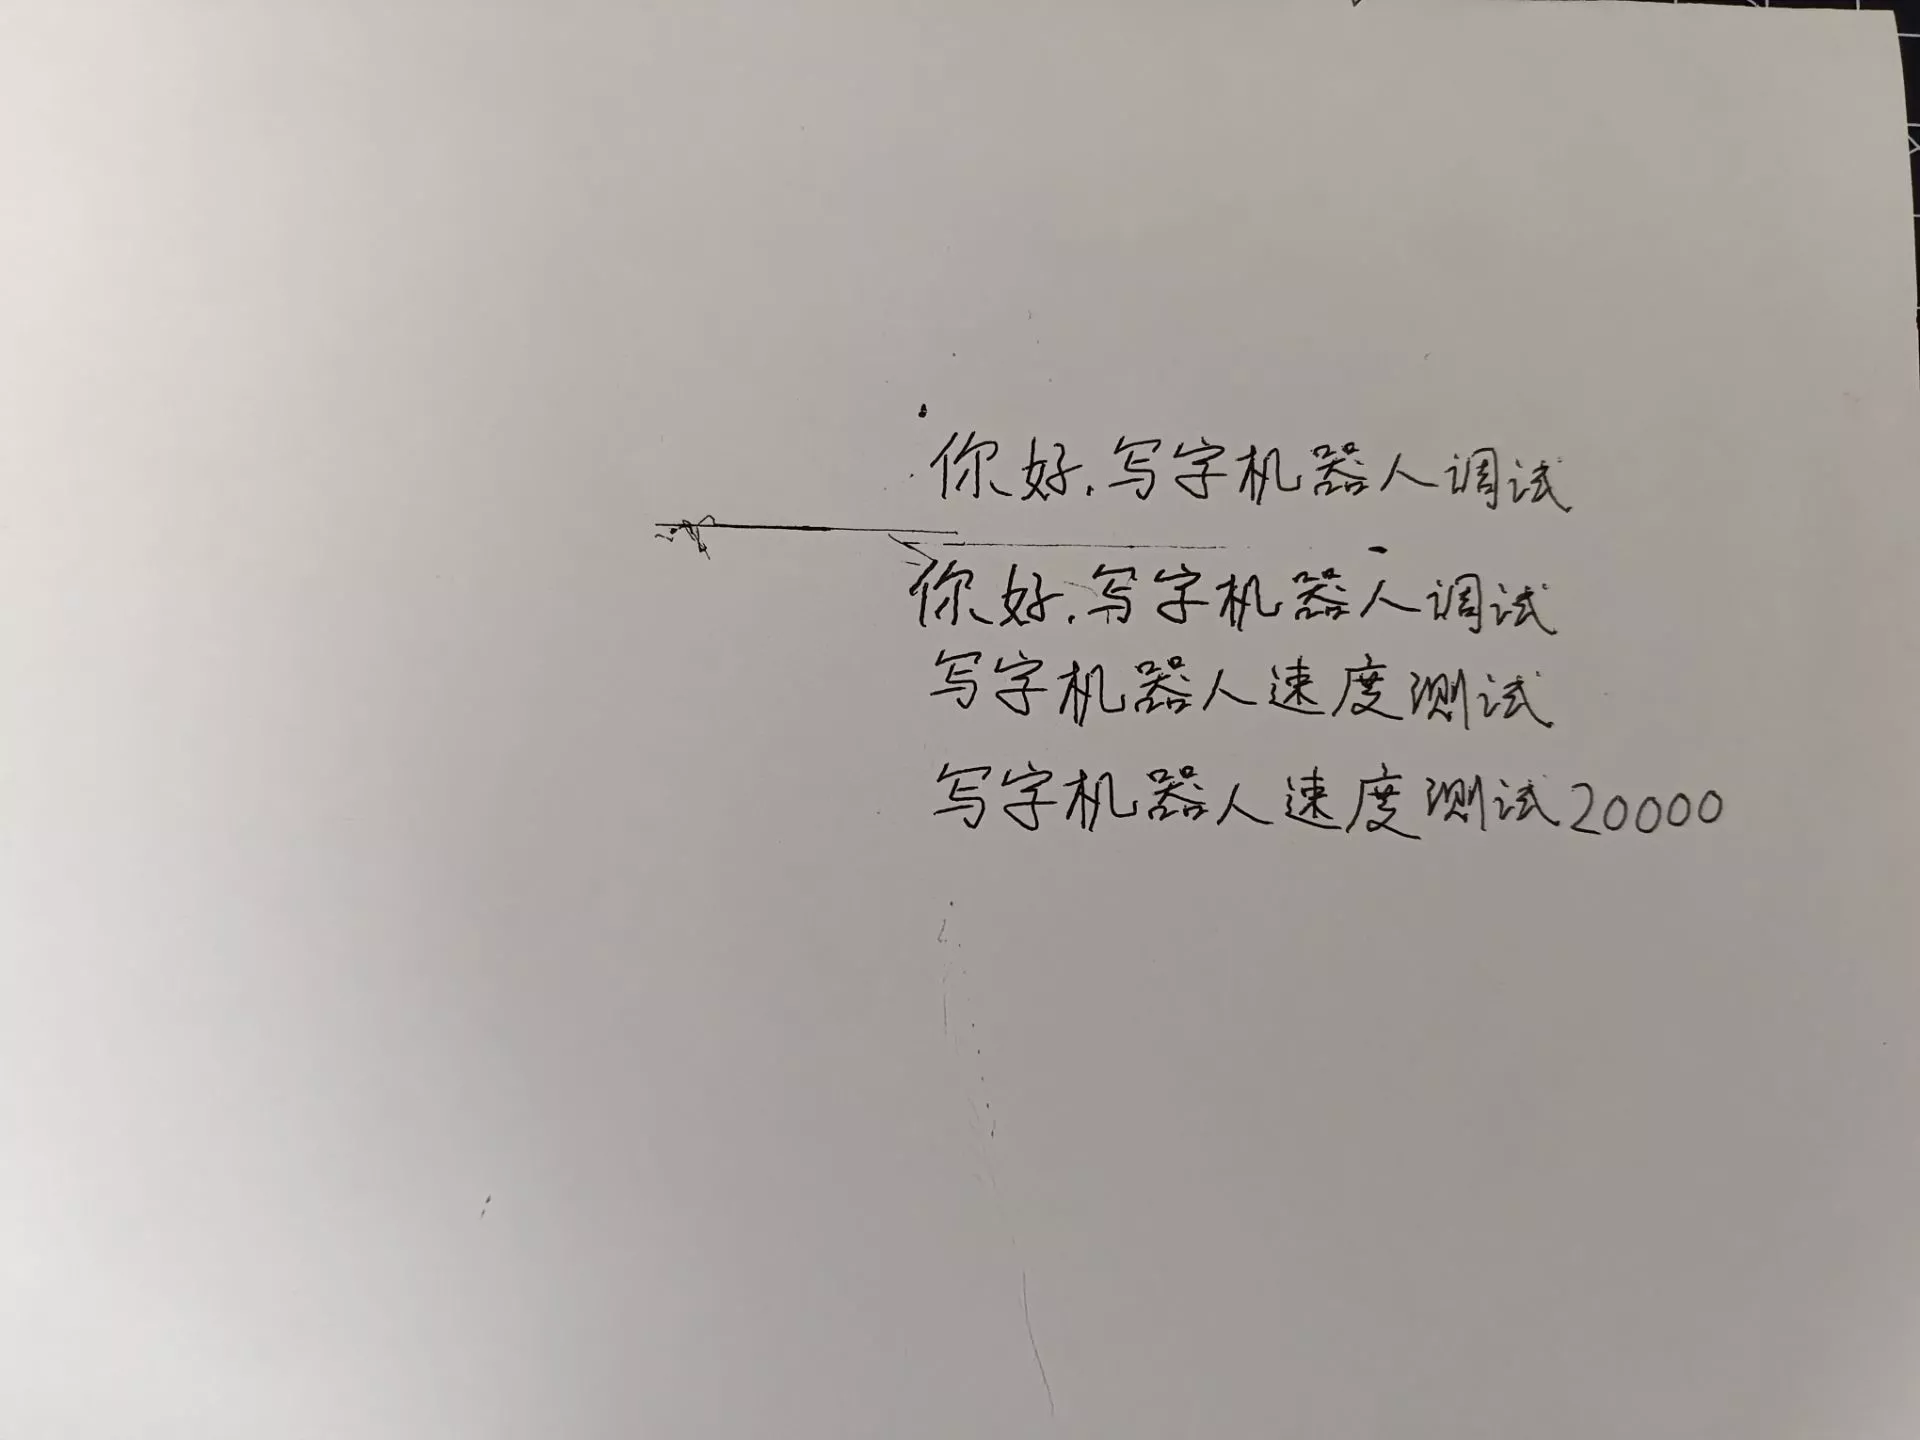 你好.写字机器人调试
你好.写字机器人调试
写字机器人速度测试
写字机器人速度测试20000